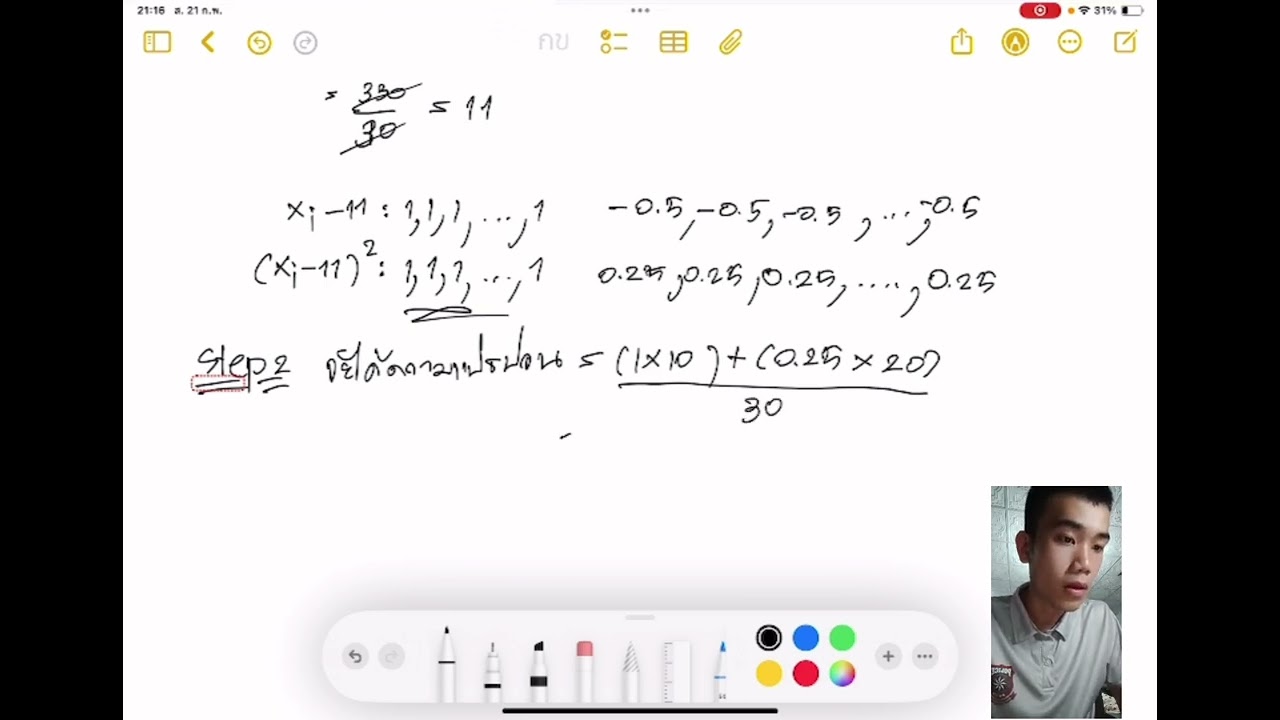 21:16 ส. 21 ก.พ.
31%
คข
= 330/30 = 11
xᵢ-11 : 1,1,1,...,1 -0.5,-0.5,-0.5,...,-0.5
(xᵢ-11)²: 1,1,1,...,1 0.25,0.25,0.25,....,0.25
Step 2 จะได้ความแปรปรวน = (1×10)+(0.25×20)
30